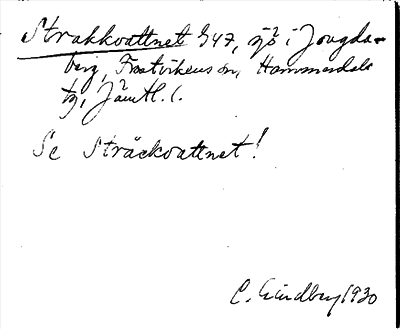 Strakkvattnet 947, sjö i Jougda-
berg, Frostvikens sn, Hammerdals
tg, Jämtl. l.
Se Sträckvattnet!
C. Lindberg 1930